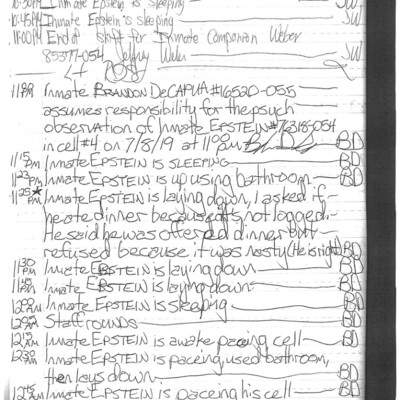 10:30PM Inmate Epstein is sleeping
10:45PM Inmate Epstein's sleeping JW
11:00PM End of shift for Inmate Companion Weber JW
85377-054 Jeffrey Weber
11PM Inmate BRANDON DeCAPUA #16520-055
assumes responsibility for the psych
observation of Inmate EPSTEIN #76318-054
in cell #4 on 7/8/19 at 11:00pm BD
11:15 PM Inmate EPSTEIN IS SLEEPING BD
11:23 PM Inmate EPSTEIN is up using bathroom BD
11:25 PM * Inmate EPSTEIN is laying down, I asked if
he ate dinner because it's not logged.
He said he was offered dinner but
refused because it was nasty (He is right) BD
11:30 PM Inmate EPSTEIN is laying down BD
11:45 PM Inmate EPSTEIN is laying down BD
12:00 AM Inmate EPSTEIN is Sleeping BD
Staff rounds BD
12:15 AM Inmate EPSTEIN is awake pacing cell BD
12:30 AM Inmate EPSTEIN is paceing, used bathroom,
then lays down. BD
12:45 AM Inmate EPSTEIN is paceing his cell BD